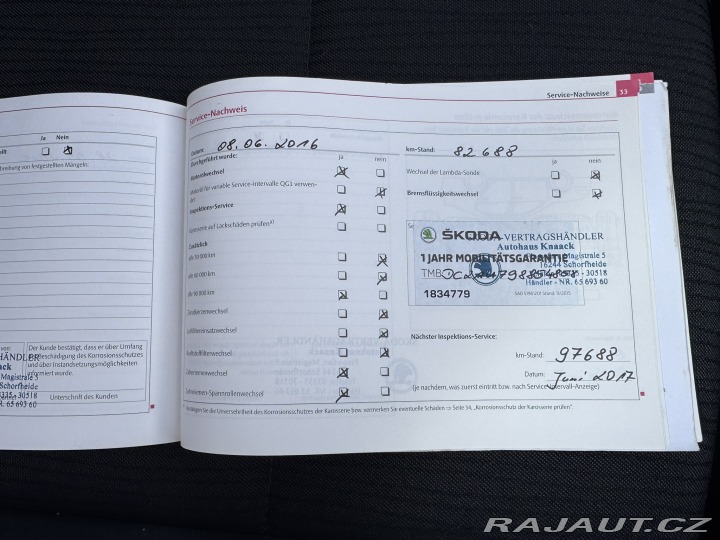 Ja Nein
Service-Nachweise 33
Service-Nachweis
Datum: 08.06.2016
km-Stand: 82688
Durchgeführt wurde: ja nein
ja nein
Motorölwechsel
Wechsel der Lambda-Sonde
Material für variable Service-Intervalle QG1 verwen-
det
Bremsflüssigkeitswechsel
Inspektions-Service
Karosserie auf Lackschäden prüfen
Zusätzlich
ŠKODA
VERTRAGSHÄNDLER
Autohaus Knaack
1 JAHR MOBILITÄTSGARANTIE
Magistrale 5
16244 Schorfheide
TMB
30518
Händler - NR. 65 693 60
1834779
alle 90 000 km
Zündkerzenwechsel
Luftfiltereinsatzwechsel
Kraftstofffilterwechsel
Zahnriemenwechsel
Zahnriemen-Spannrollenwechsel
Nächster Inspektions-Service:
km-Stand: 97688
Datum: Juni 2017
(je nachdem, was zuerst eintritt bzw. nach Service-Intervall-Anzeige)
Bestätigen Sie die Unversehrtheit des Korrosionsschutzes der Karosserie bzw. vermerken Sie eventuelle Schäden ⇒ Seite 54, „Korrosionsschutz der Karosserie prüfen".
Der Kunde bestätigt, dass er über Umfang
Beschädigung des Korrosionsschutzes
und über Instandsetzungsmöglichkeiten
informiert wurde.
HÄNDLER
Magistrale 5
Schorfheide
03335- 30518
NR. 65 693 60
Unterschrift des Kunden
RAJAUT.CZ